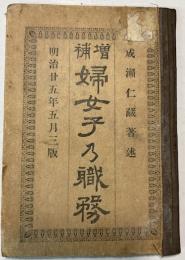 成瀬仁蔵著述
増補
婦女子乃職務
明治廿五年五月三版